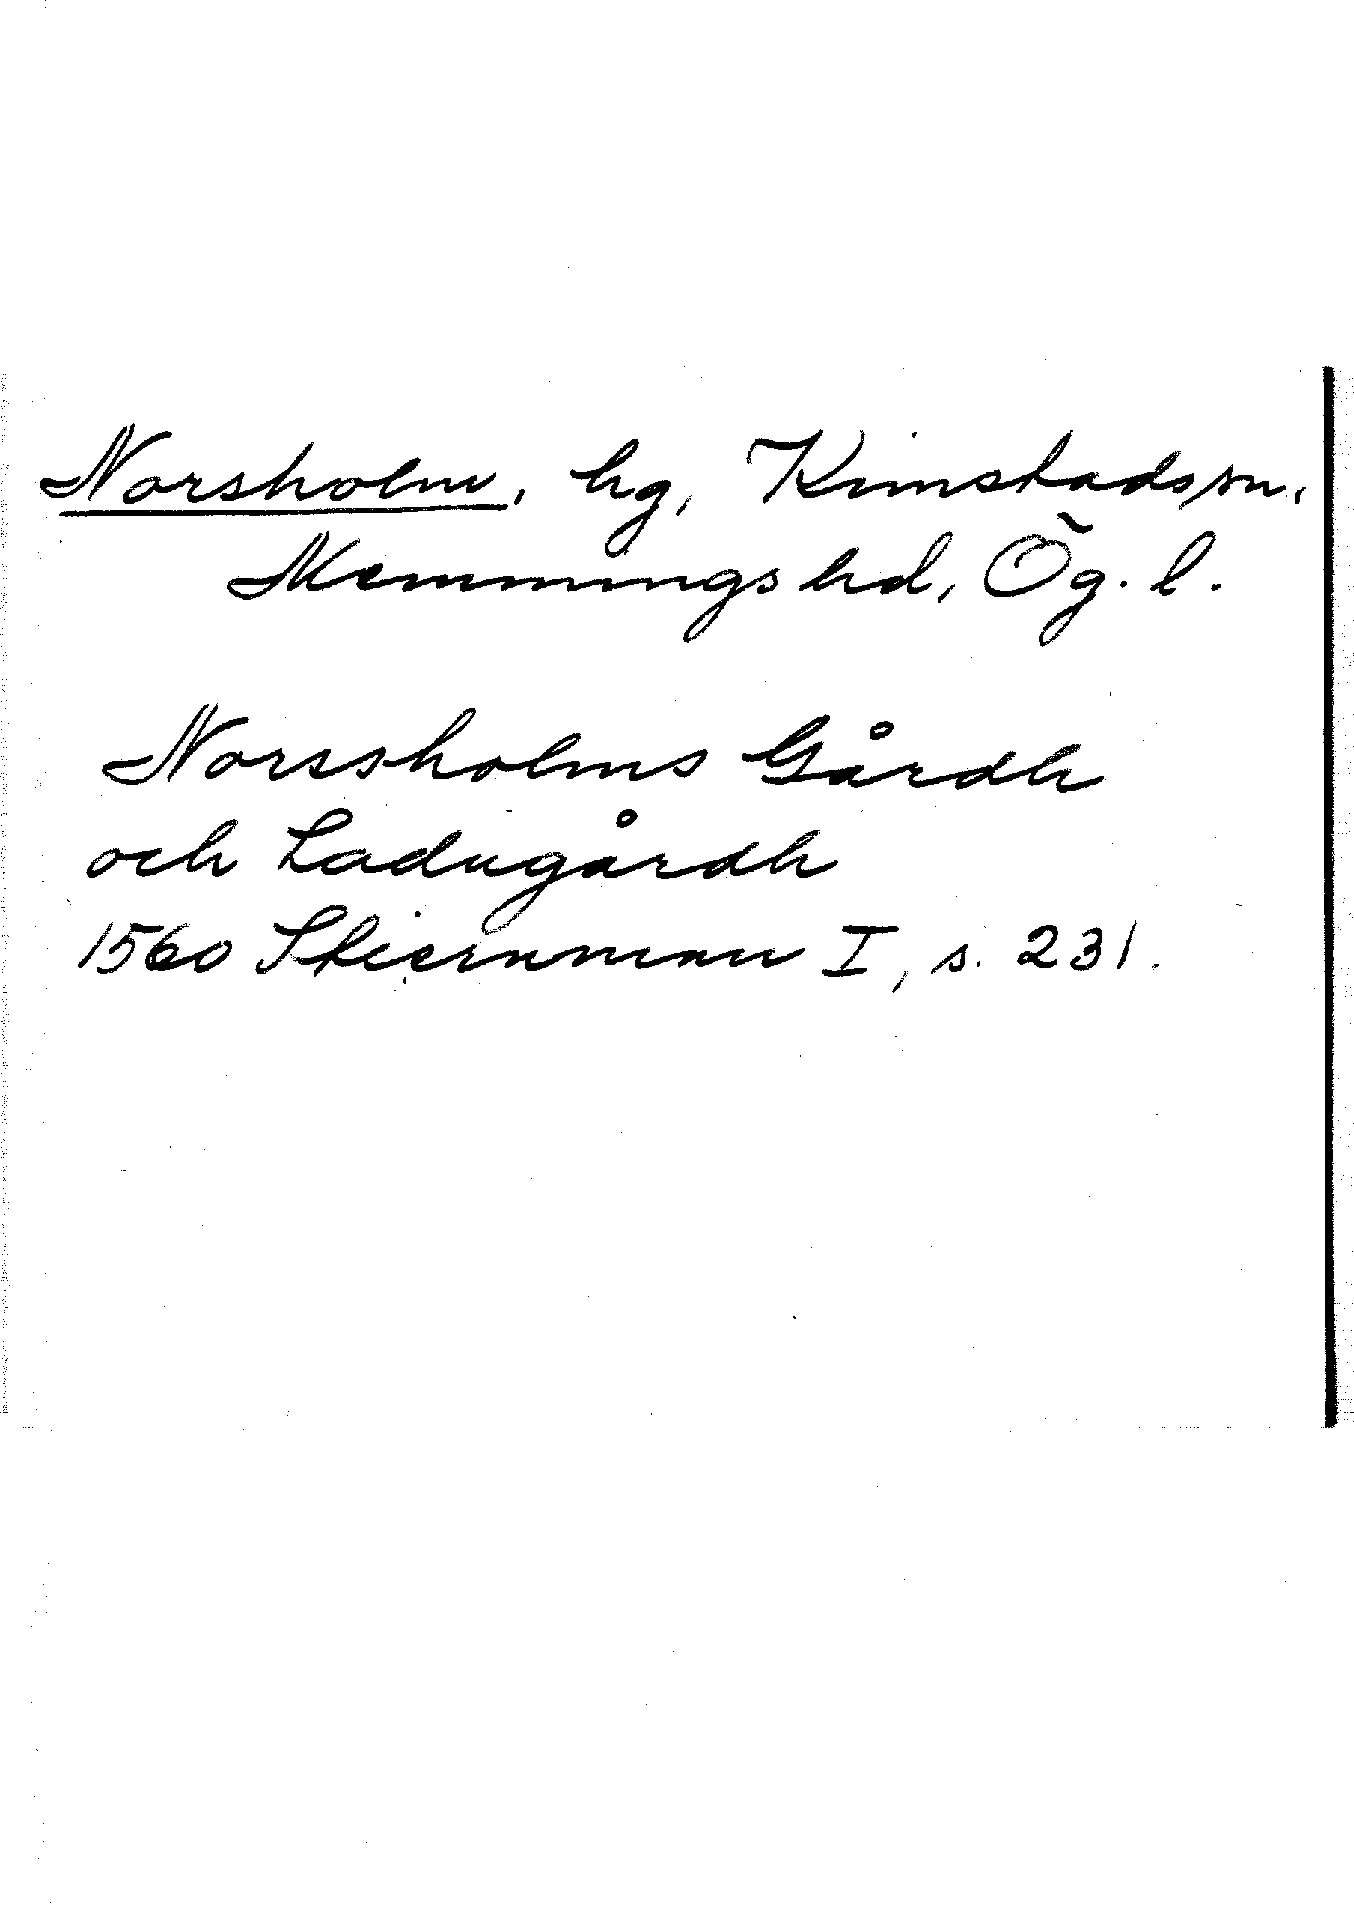 Norsholm, hg, Kimstadssn,
Memmingshd, Ög. l.
Norssholms Gårdh
och Ladugårdh
1560 Stiernman I, s. 231.